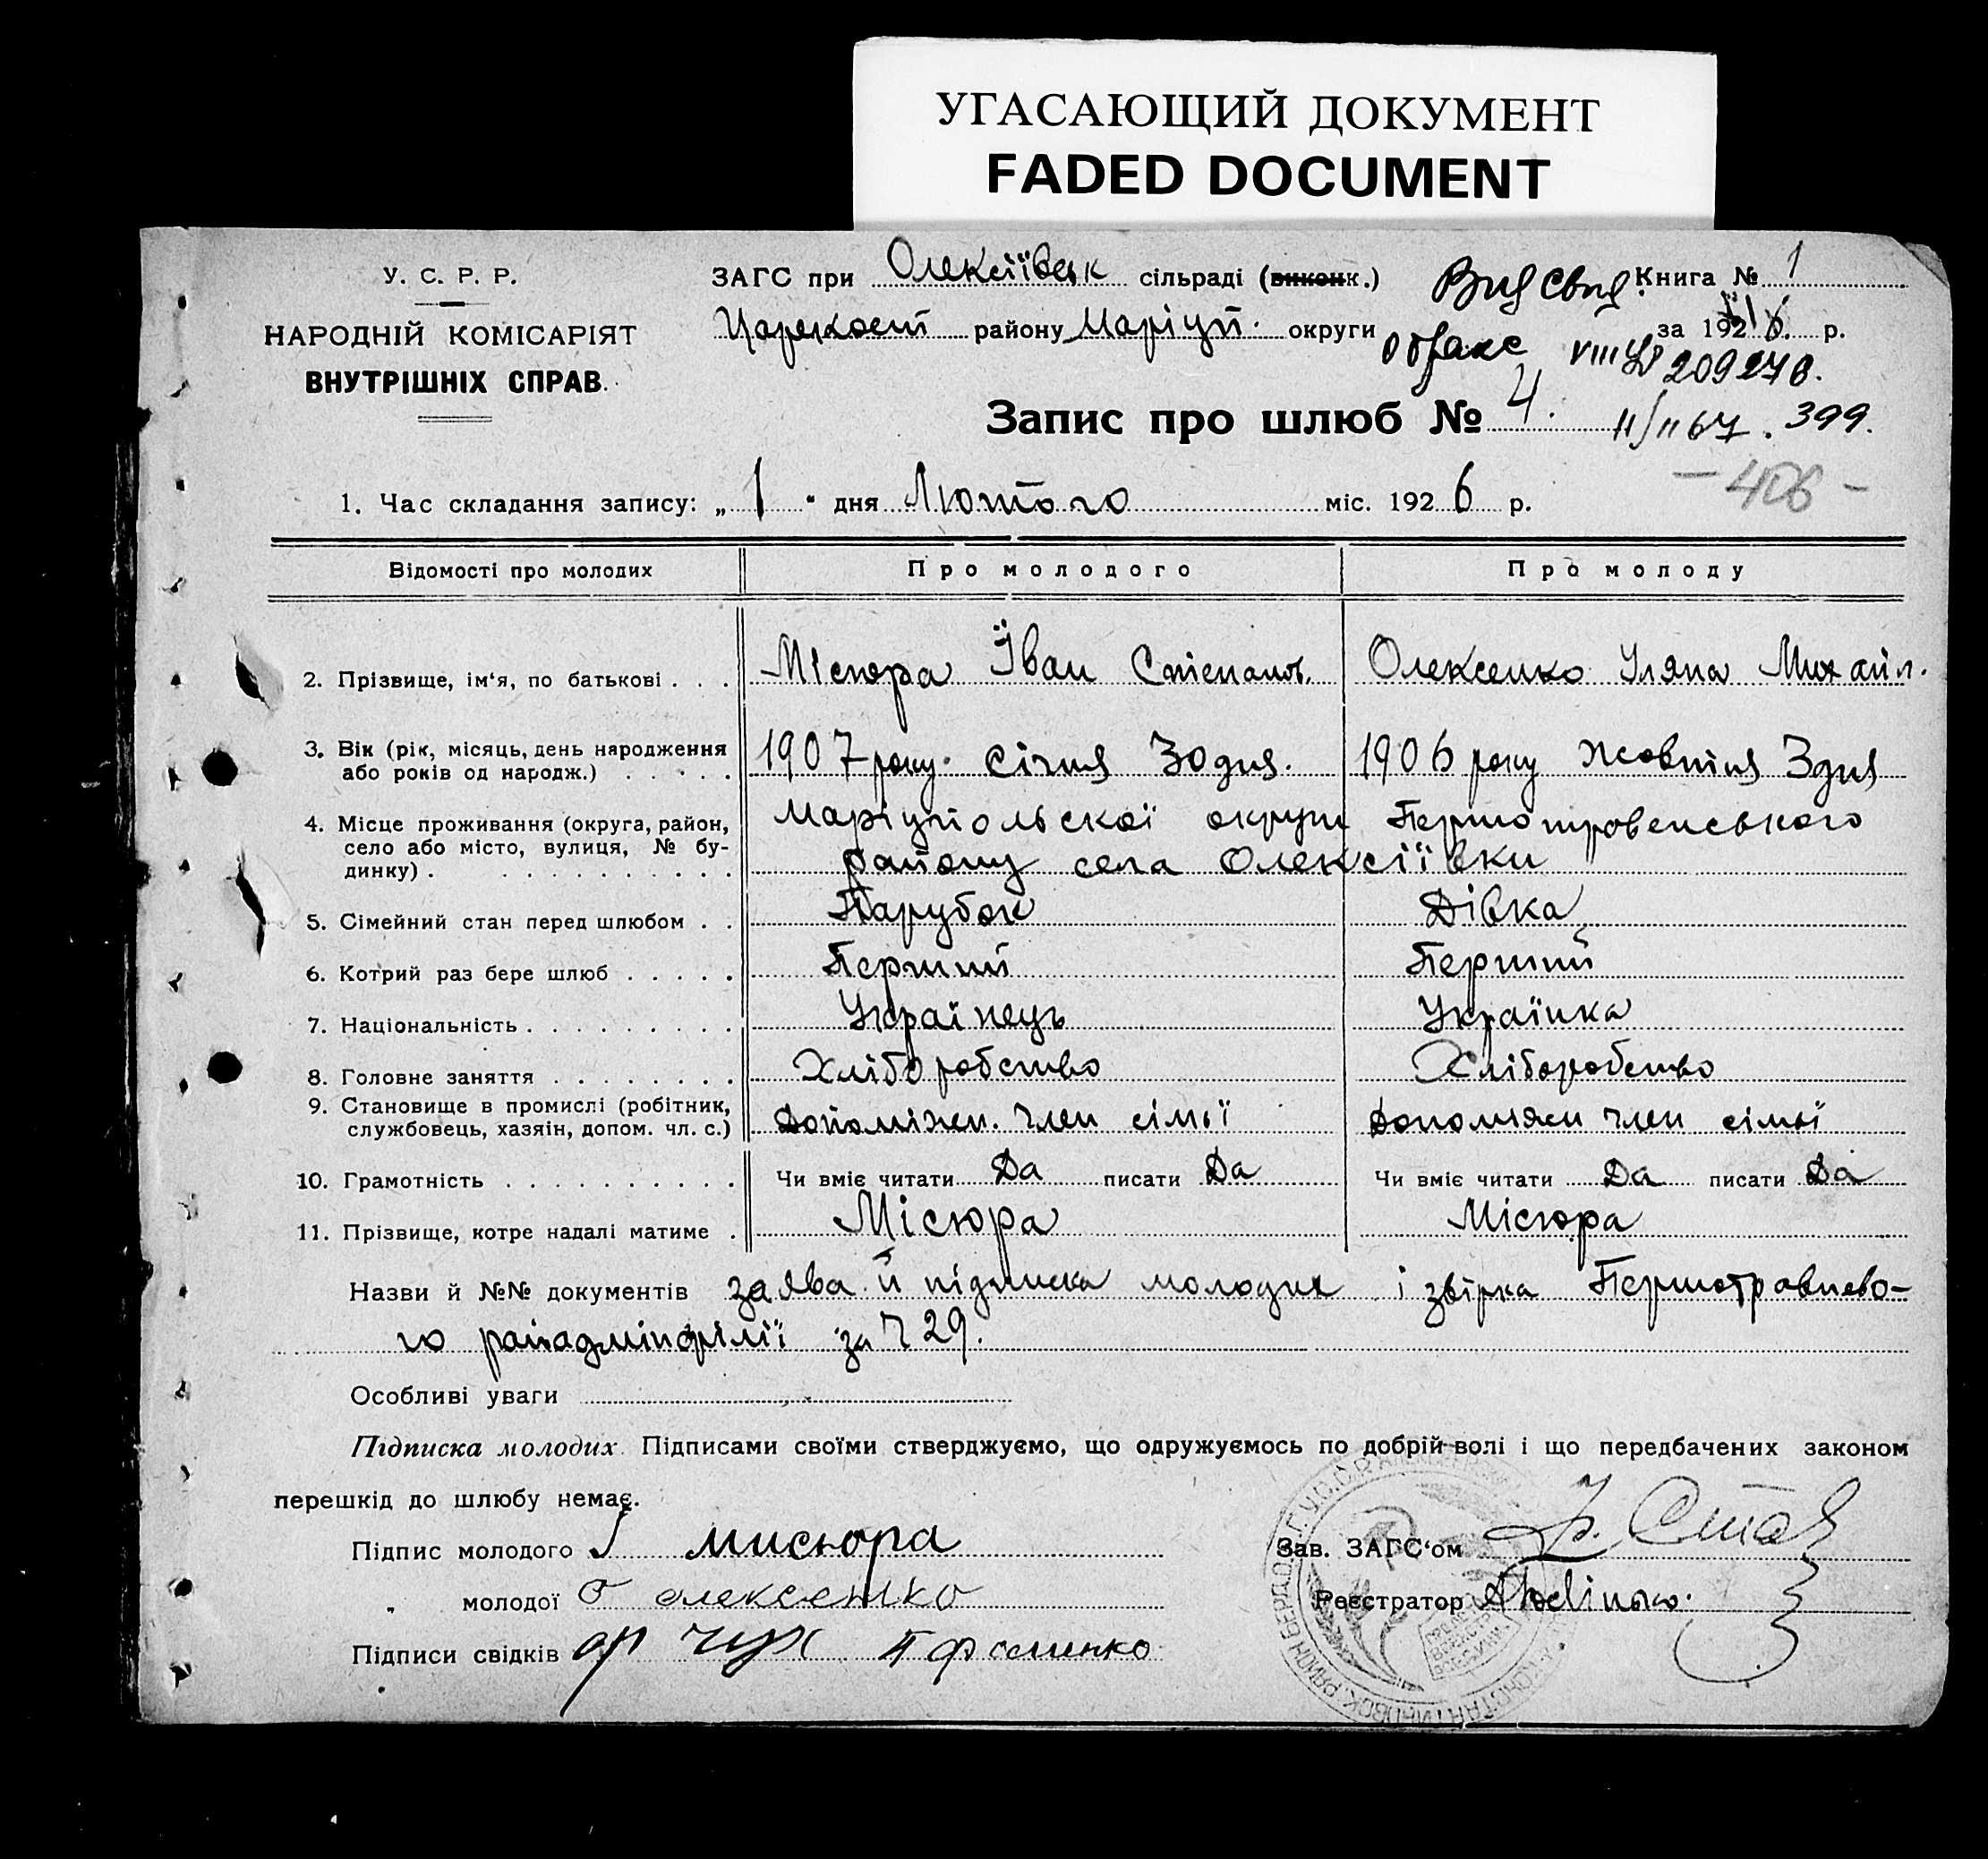 УГАСАЮЩИЙ ДОКУМЕНТ
FADED DOCUMENT
У. С. Р. Р.
НАРОДНІЙ КОМІСАРІЯТ
ВНУТРІШНІХ СПРАВ.
ЗАГС при Олексіївськ сільраді (виконк.) Книга № 1
району Маріуп. округи за 1926 р.
209270.
Запис про шлюб № 4. 11/11 67. 399.
- 406 -
1. Час складання запису: „ 1 " дня Лютого міс. 1926 р.
Відомості про молодих Про молодого Про молоду
2. Прізвище, ім'я, по батькові . . . Місюра Їван Стєпанов. Олексенко Уляна Михайл.
3. Вік (рік, місяць, день народження або років од народж.) . . . . . 1907 року Січня 30 дня. 1906 року Жовтня 3 дня
4. Місце проживання (округа, район, село або місто, вулиця, № будинку) . . . . . . . . . . Маріупольскої округи Першотровенського
району села Олексіївки
5. Сімейний стан перед шлюбом . . Парубок Дівка
6. Котрий раз бере шлюб . . . . . Перший Перший
7. Національність . . . . . . . . . Українець Українка
8. Головне заняття . . . . . . . . Хліборобство Хліборобство
9. Становище в промислі (робітник, службовець, хазяін, допом. чл. с.) Допоміжн. член сімьї Допомяжн член сімьї
10. Грамотність . . . . . . . . . . Чи вміє читати Да писати Да Чи вміє читати Да писати Да
11. Прізвище, котре надалі матиме . Місюра Місюра
Назви й №№ документів заява й підписка молодих і звірка Першотравнево-
го райадмінфілії за Ч 29.
Особливі уваги
Підписка молодих. Підписами своїми стверджуємо, що одружуємось по добрій волі і що передбачених законом
перешкід до шлюбу немає.
Підпис молодого І мисюра Зав. ЗАГС'ом
„ молодої О олексенко Реєстратор
Підписи свідків П фоменко